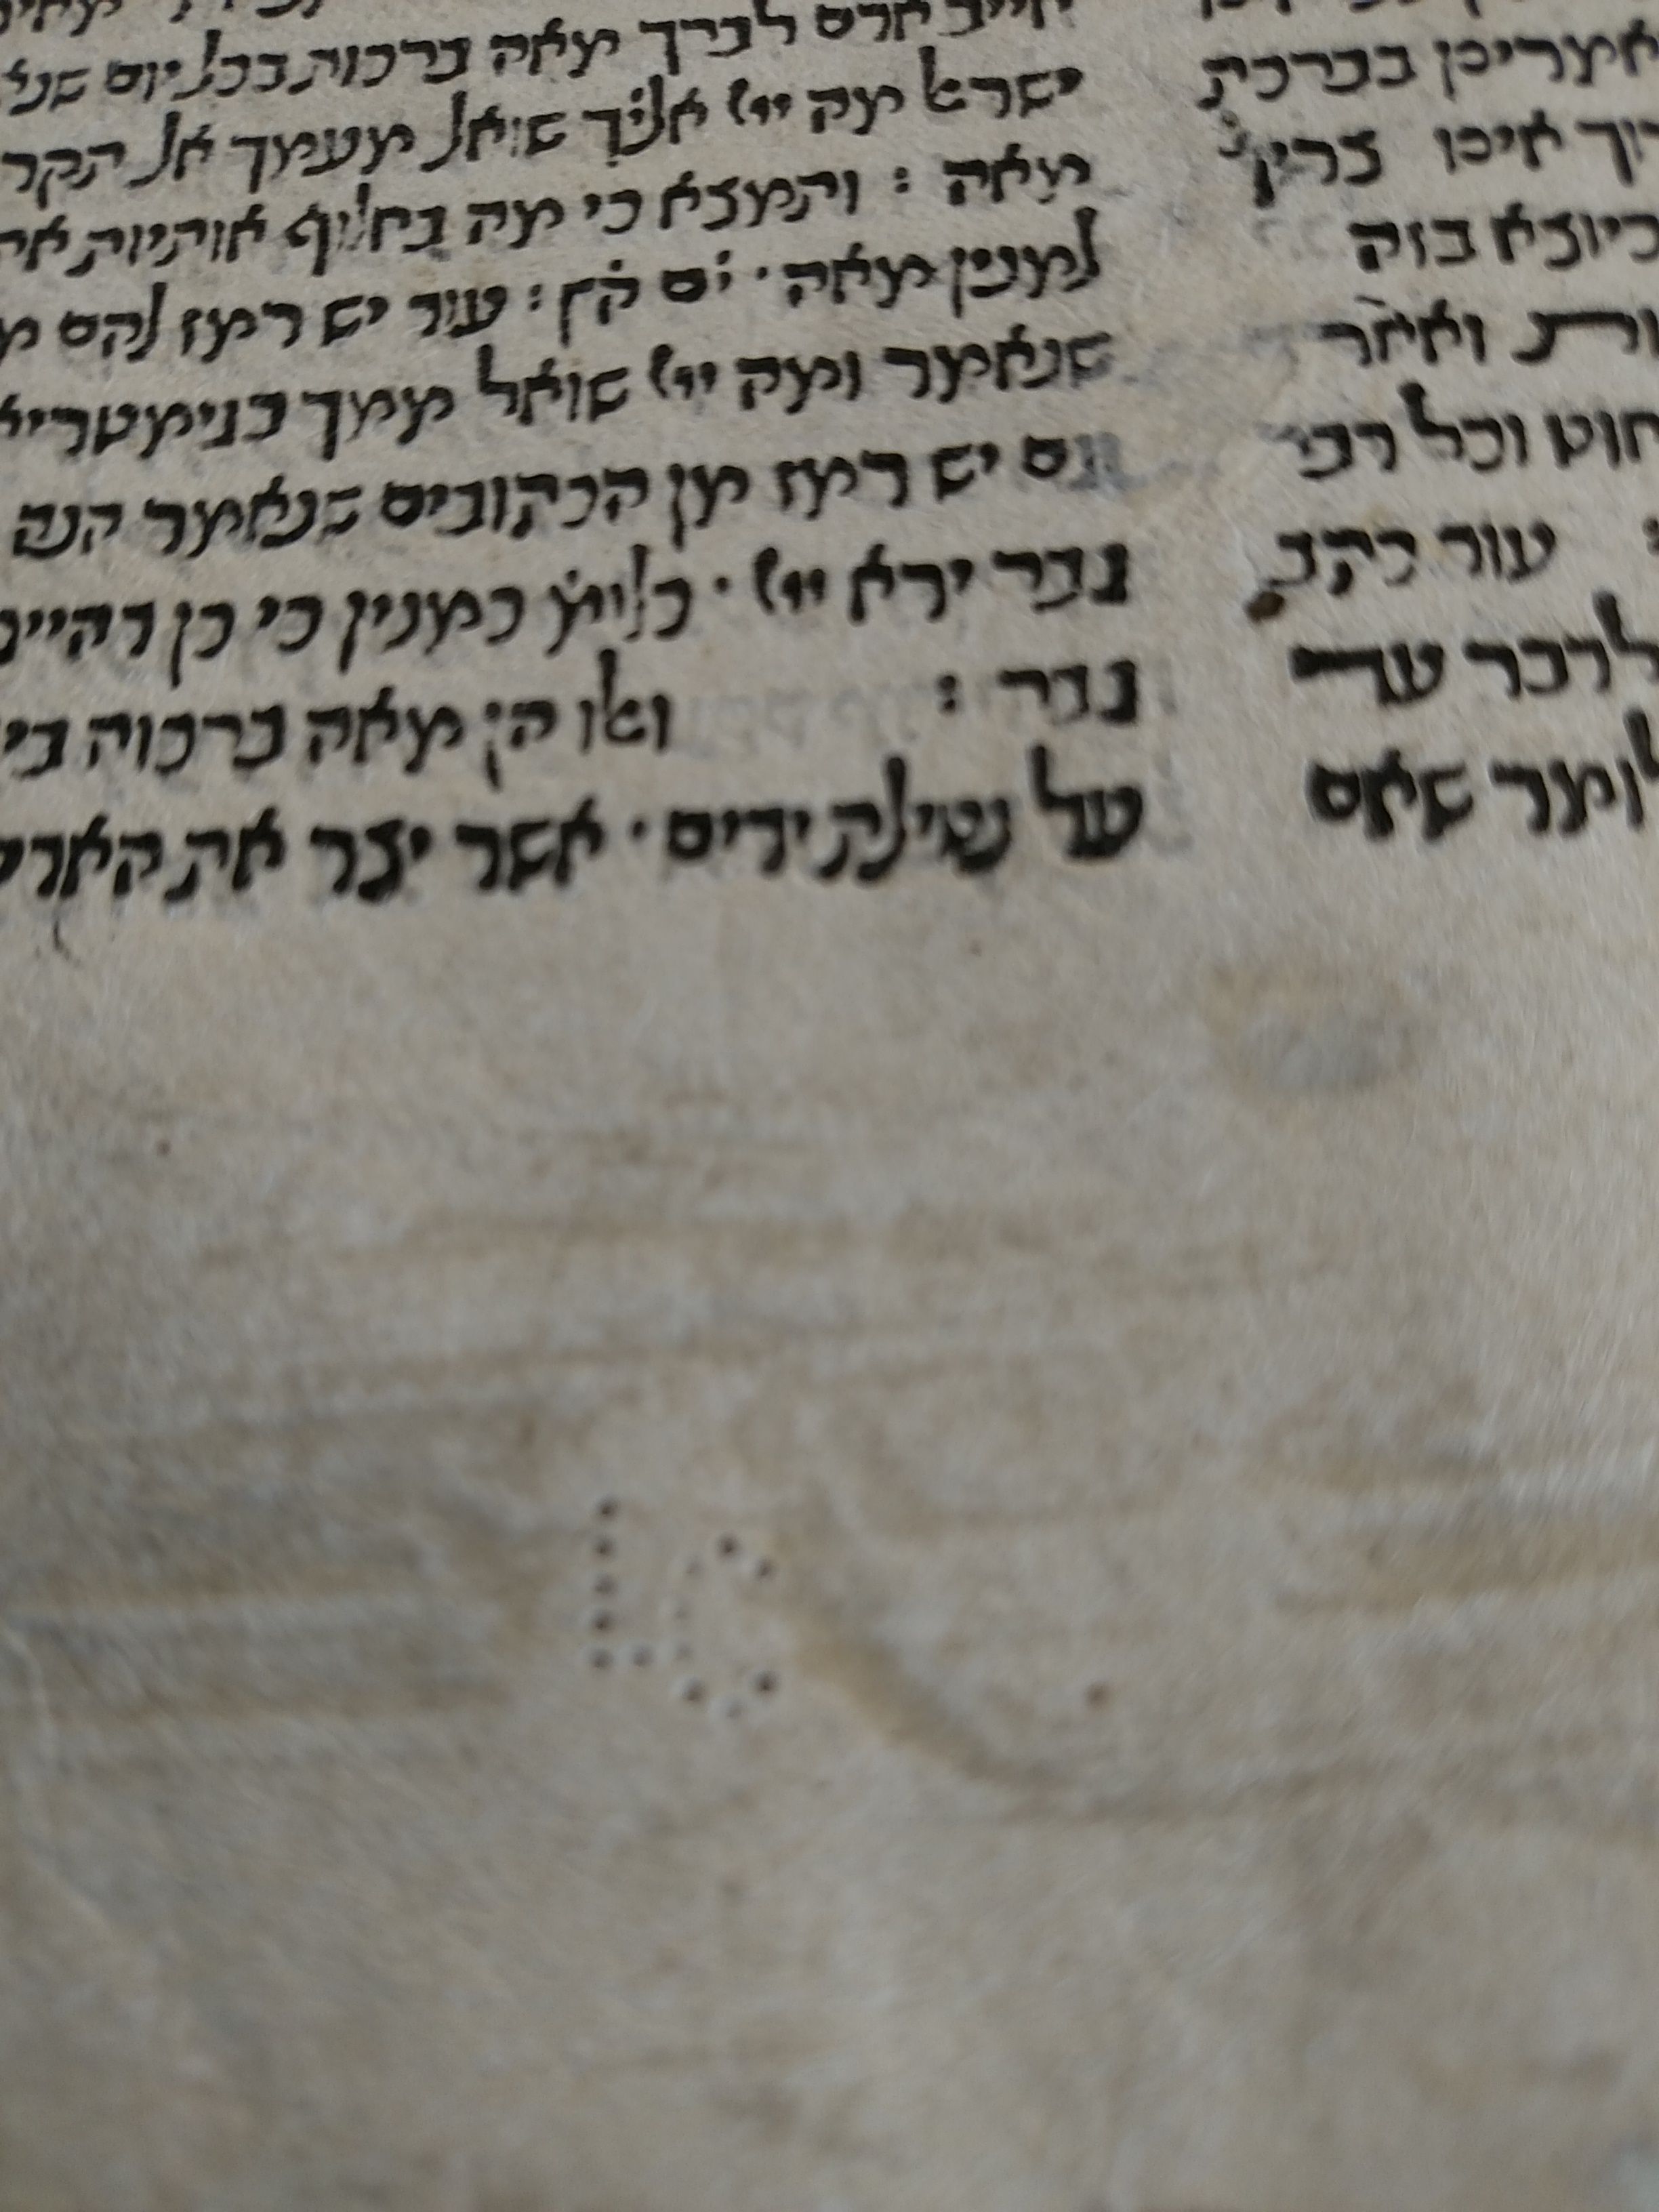 חייב אדם לברך מאה ברכות בכל יום שנא
ישראל מה ייי אלקיך שואל מעמך אל תקר
מאה : ותמצא כי מה בחלוף אותיות את
למנין מאה · ים קץ : עוד יש רמז להם
שנאמר ומה ייי שואל ממך בגימטריא
גם יש רמז מן הכתובים שנאמר הנה
גבר ירא ייי · כלומ כמנין כי כן דהיינו
גבר : ואלו הן מאה ברכות
על נטילת ידים · אשר יצר את האדם
אצריכן בברכת
איכו צריך
כיוצא בזה
ואחר
חוט וכל דבר
: עוד כתב
לדבר עד
לומר שאם
LC